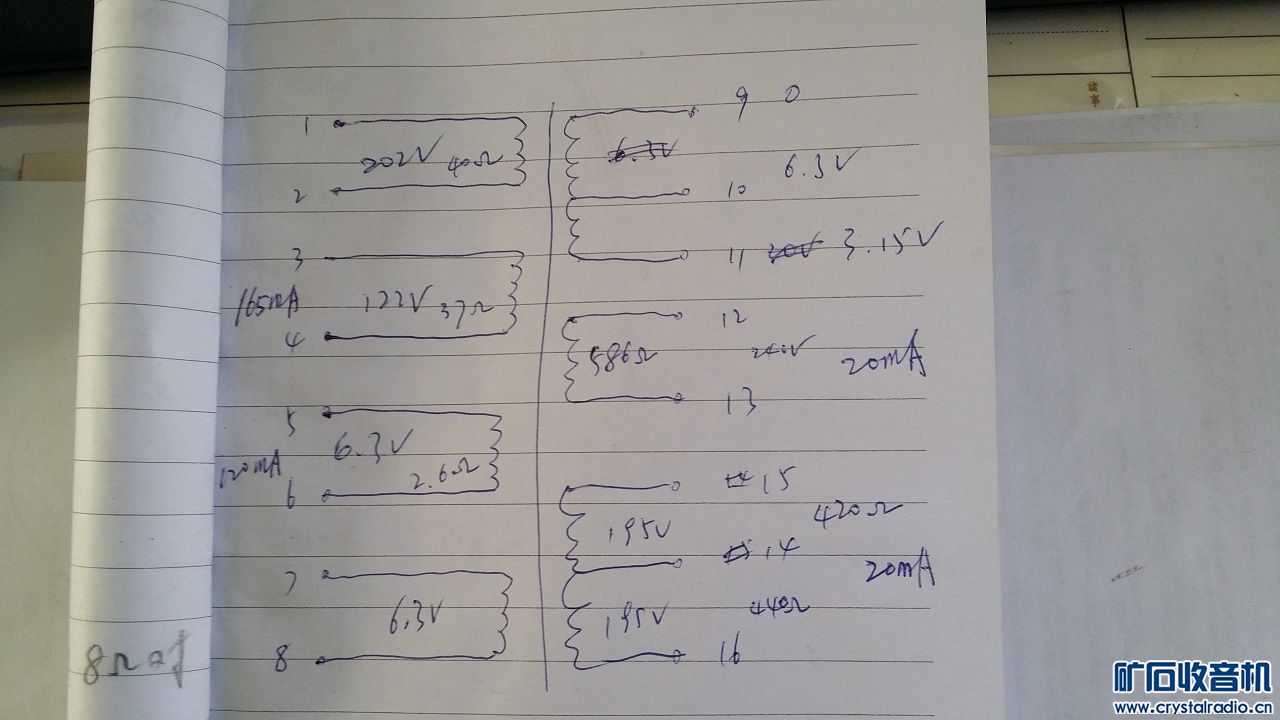 9 0
1
202V 40Ω
6.3V
6.3V
2
10
3
11 30V 3.15V
165mA
122V 37Ω
4
12
586Ω
240V
20mA
13
5
6.3V
120mA
2.6Ω
6
14 15
420Ω
195V
15 14
7
20mA
6.3V
195V
440Ω
8
16
8Ω
矿石收音机
www.crystalradio.cn